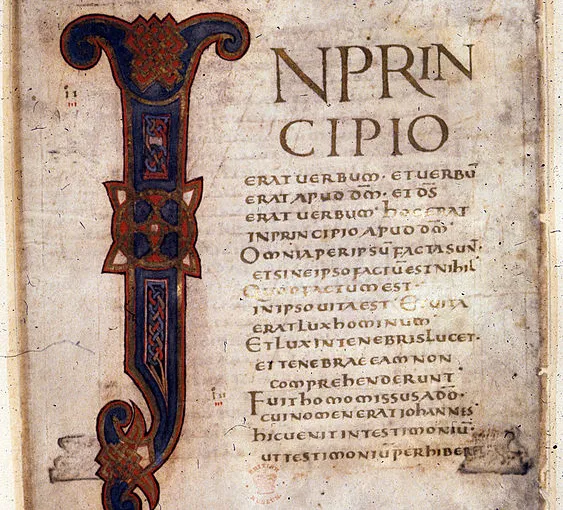 IN PRIN
CIPIO
ERAT UERBUM · ET UERBŪ
ERAT APUD DM̄ · ET DS̄
ERAT UERBUM · HOC ERAT
IN PRINCIPIO APUD DM̄
OMNIA PER IPSŪ FACTA SUN̄ ·
ET SINE IPSO FACTŪ EST NIHIL
QUOD FACTUM EST ·
IN IPSO UITA EST · ET UITA
ERAT LUX HOMINUM
ET LUX IN TENEBRIS LUCET ·
ET TENEBRAE EAM NON
COMPREHENDERUNT
FUIT HOMO MISSUS A DO̅ ·
CUI NOMEN ERAT IOHANNES ·
HIC UENIT IN TESTIMONIUM̄ ·
UT TESTIMONIŪ PERHIBER